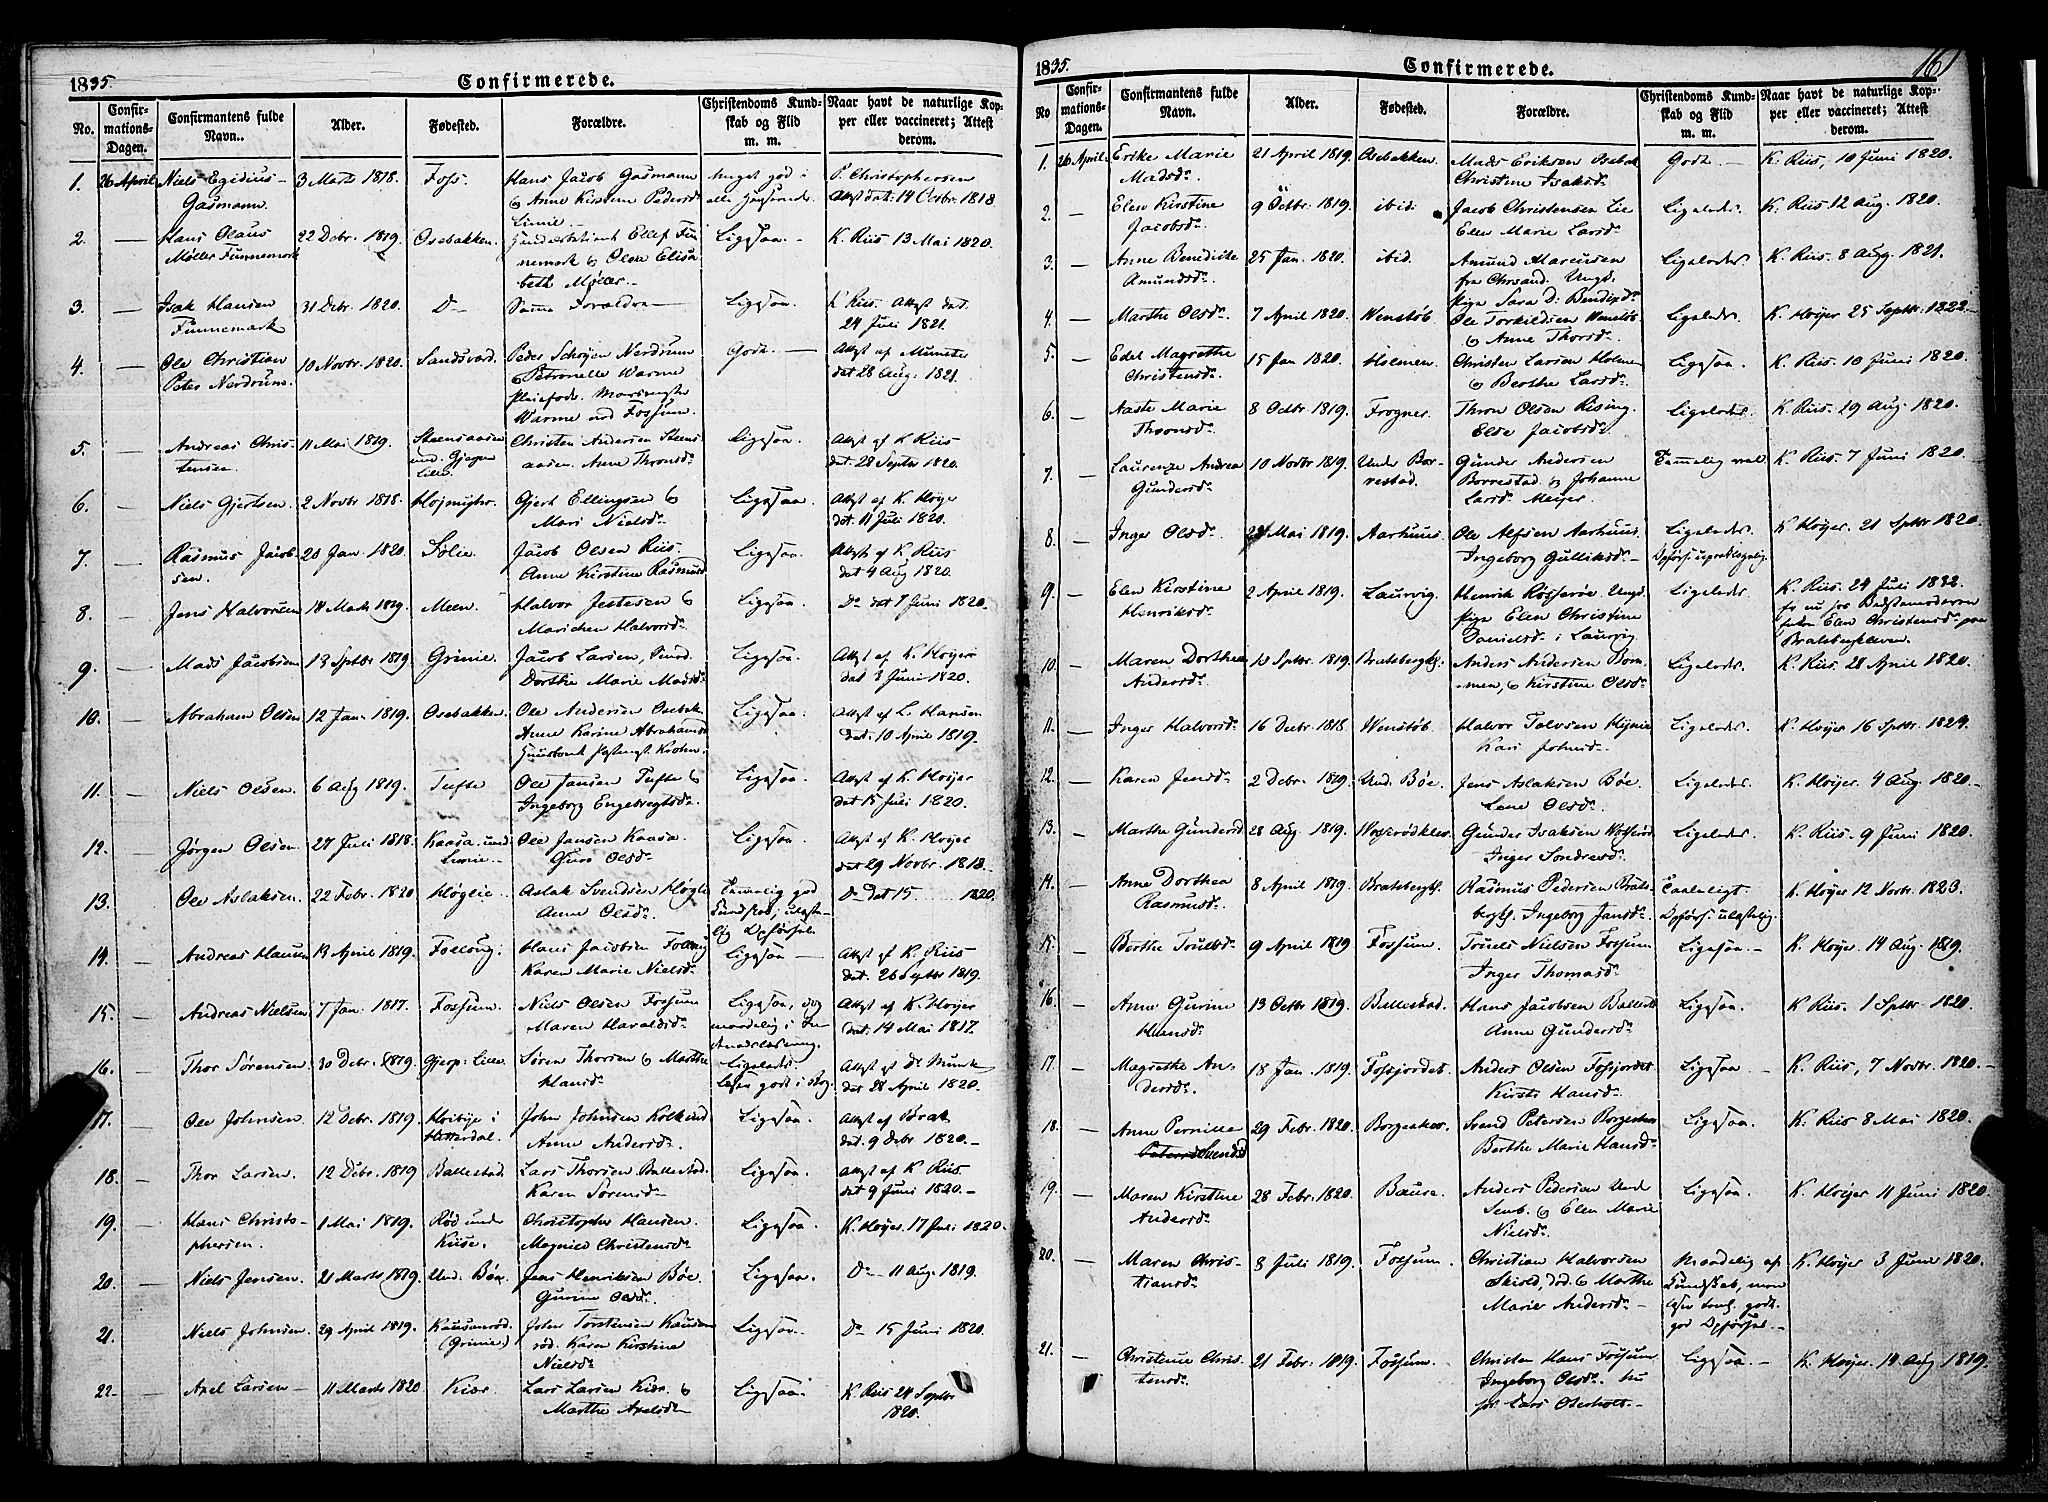 1835.
Confirmerede.
No.
Confir-
mations-
Dagen.
Confirmantens fulde
Navn..
Alder.
Fødested.
Forældre.
Christendoms Kund-
skab og Flid
m. m.
Naar havt de naturlige Kop-
per eller vaccineret; Attest
derom.
1. 26 April Niels Egidius 3 Marts 1818. Foss. Hans Jacob Gasmann meget god i P. Christophersen
Gasmann. & Anne Kirstine Pedersd. alle Attest dat: 14 Octbr: 1818
Linnie.
2. — Hans Olaus 22 Debr. 1819. Osebakken. Ellef Fun- Ligesaa. K. Riis 13 Mai 1820.
Møller Funnemark nemark & Olea Elisa
beth Møller.
3. — Isak Hansen 31 Debr. 1820. D— Samme Forældre — Ligesaa. K. Riis. Attest dat.
Funnemark 24 Juli 1821.
4. — Ole Christian 10 Novbr. 1820. Sandsværd. Peder Schøien Nerdrum Godt. — Attest af Munster
Peter Nerdrum. & Petronelle Warme dat 28 Aug. 1821.
Pleiefodr.
Warme ved Fossum.
5. — Andreas Chris- 11 Mai 1819. Steensaasen Christen Andersen Steens Ligesaa. Attest af K. Riis
tensen. und. Gjerpen aasen. Anne Thronsd. dat: 28 Septbr 1820.
6. — Niels Gjertsen. 2 Novbr 1818. Gjert Ellingsen & Ligesaa. Attest af K. Høyer
Mari Nielsd. dat: 11 Juli 1820.
7. — Rasmus Jacob- 20 Jan. 1820. Sølie. Jacob Olsen Riis. Ligesaa. Attest af K. Riis
sen. Anne Kirstine Rasmusd dat 4 Aug 1820.
8. — Jens Halvorsen 18 Marts 1819. Meen. Halvor Jestesen & Ligesaa. D. dat 7 Juni 1820.
Marichen Halvorsd.
9. — Mads Jacobsen 13 Septbr 1819 Grinie. Jacob Larsen, Ligesaa. Attest af K. Høyer
Dorthe Marie Madsd. dat 3 Juni 1820.
10. — Abraham Olsen 12 Jan. 1819. Osebakken. Ole Andersen Osebak Ligesaa. Attest af L. Hansen
Anne Karine Abrahamsd dat: 10 April 1819.
11. — Niels Olsen. 6 Aug 1819. Tufte Ole Jansen Tufte & Ligesaa. Attest af K. Høyer
Ingeborg Engebregtsd. dat 15 Juli 1820.
12. — Jørgen Olsen. 27 Juli 1818. Kaasa. und Ole Jansen Kaasa. Ligesaa. Attest af K. Høyer
Linnie. Guro Olsd. dat 29 Novbr. 1818.
13. — Ole Aslaksen. 22 Febr. 1820 Høglie. Aslak Svendsen Høglie Temmelig god D. dat 15 1820.
Anne Olsd. Kundskab; ulaste-
lig Opførsel.
14. — Andreas Hansen 19 April 1819. Follaug. Hans Jacobsen Follaug Ligesaa — Attest af K. Riis
Karen Marie Nielsd. dat: 26 Septbr 1819.
15. — Andreas Nielsen 7 Jan. 1817. Fossum. Niels Olsen Fossum Ligesaa, dog Attest af K. Høyer
Maren Haraldsd. maadelig i In- dat. 14 Mai 1817.
16. — Thor Sørensen 30 Debr. 1819. Gjerp: Lille. Søren Thorsen & Marthe Ligeledes Attest af D. Munk
Hansd. Læser godt i Bog. dat 28 April 1820.
17. — Ole Johnsen 12 Debr. 1819 i John Johnsen Ligesaa. Attest af
Hitterdal. Anne Andersd. dat. 9 Debr 1820.
18. — Thor Larsen. 12 Debr. 1819 Ballestad. Lars Thorsen Ballestad. Ligesaa. Attest af K. Riis
Karen Sørensd. dat 9 Juni 1820.
19. — Hans Christo- 1 Mai 1819. Rød under Christopher Hansen. Ligesaa. K. Høyer. 17 Juli 1820.
phersen. Kise. Magnild Christensd.
20. — Niels Jensen. 21 Marts 1819. Und. Bøe. Jens Henriksen Bøe. Ligesaa. D. 11 Aug. 1819.
Gurine Olsd.
21. — Niels Johnsen 29 April 1819. Kausanrød. John Torstensen Kausan Ligesaa. D. 15 Juni 1820.
(Grinie) rød. Karen Kirstine
Nielsd.
22. — Axel Larsen 11 Marts 1820 Kiær. Lars Larsen Kiær & Ligesaa. K. Riis 24 Septbr
Marthe Axelsd. 1820.
161
1835.
Confirmerede.
No
Confir-
mations-
Dagen.
Confirmantens fulde
Navn.
Alder.
Fødested.
Forældre.
Christendoms Kund-
skab og Flid
m. m.
Naar havt de naturlige Kop-
per eller vaccineret; Attest
derom.
1. 26 April. Erike Marie 21 April 1819. Osebakken. Mads Eriksen Osebak Godt — K. Riis, 10 Juni 1820.
Madsd. Christine Isaksd.
2. — Elen Kirstine 9 Octbr. 1819. ibid. Jacob Christensen Lie Ligeledes. K. Riis 12 Aug. 1820.
Jacobsd. Elen Marie Larsd.
3. — Anne Benedicte 25 Jan. 1820. ibid. Amund Marcussen Ligeledes. K. Riis. 8 Aug. 1821.
Amundsd. fra Chrsand. Ungk.
Pige Sara D. Bendixd.
4. — Marthe Olsd. 7 April 1820. Wenstøb. Ole Torkildsen Wenstøb Ligeledes. K. Høyer 25 Septbr. 1822.
& Anne Thorsd.
5. — Edel Magrethe 15 Jan 1820. Holmen. Christen Larsen Holmen Ligesaa. K. Riis. 10 Juni 1820.
Christensd. & Berthe Larsd.
6. — Aaste Marie 8 Octbr 1819. Frogner. Thron Olsen Rising. Ligeledes. K. Riis. 29 Aug. 1820.
Thronsd. Else Jacobsd.
7. — Laurenze Andrea 10 Novbr 1819. Under Bor- Gunder Andersen Temmelig vel K. Riis. 7 Juni 1820.
Gundersd. restad. Borrestad & Johanne
Larsd. Meyer.
8. — Inger Olsd. 28 Mai 1819. Aarhuus. Ole Alfsen Aarhuus. Ligeledes. K. Høyer. 21 Septbr 1820.
Ingeborg Gulliksd.
9. — Elen Kirstine 2 April 1819. Laurvig. Henrik Ungk. Ligeledes. K. Riis. 24 Juli 1832.
Henriksd. Pige Elen Christine
Danielsd. i Laurvig. Bratsbergkleven.
10. — Maren Dorthea 10 Septbr. 1819. Bratsbergkl. Anders Andersen Bom- Ligeledes. K. Riis 28 April 1820.
Andersd. men, & Kirstine Olsd.
11. — Inger Halvorsd. 16 Decbr. 1818. Wenstøb. Halvor Ligeledes. K. Høyer 16 Septbr. 1824.
Kari Johnsd.
12. — Karen Jensd. 2 Debr. 1819. Und. Bøe. Jens Aslaksen Bøe. Ligeledes. K. Høyer. 4 Aug. 1820.
Lene Olsd.
13. — Marthe Gundersd 28 Aug 1819. Gunder Isaksen Ligeledes. K. Riis. 9 Juni 1820.
Inger Sondresd.
14. — Anne Dorthea 8 April 1819. Bratsbergkl. Rasmus Pedersen Brats Taaleligt. K. Høyer 12 Novbr. 1823.
Rasmusd. bergkl. Ingeborg Jansd. Opførs: ulastelig.
15. — Berthe Trulsd. 9 April 1819 Fossum. Truels Nielsen Fossum Ligesaa. K. Høyer. 14 Aug. 1819.
Inger Thomasd.
16. — Anne Gurine 13 Octbr 1819. Ballestad. Hans Jacobsen Ballest. Ligesaa. K. Riis. 1 Septbr. 1820.
Hansd. Anne Gundersd.
17. — Magrethe An- 18 Jan. 1819. Fossjordet. Anders Olsen Fossjordet Ligesaa. K. Riis, 7 Novbr. 1820.
dersd. Kirsti Hansd.
18. — Anne Pernille 29 Febr. 1820. Borgeaas. Svend Petersen Ligesaa. K. Riis 8 Mai 1820.
Svendsd Berthe Marie Hansd.
19. — Maren Kirstine 28 Febr. 1820. Anders Pedersen Ligesaa. K. Høyer 11 Juni 1820.
Andersd. & Elen Marie
Nielsd.
20. — Maren Chris- 8 Juli 1819. Fossum. Christian Halvorsen Maadelig af K. Høyer 3 Juni 1820.
tiansd. Skiold, død. & Marthe Kundskab, men
Marie Andersd. læser godt.
god Opførsel.
21. — Christine Chris- 21 Febr. 1819. Fossum. Christen Hans Fossum Ligesaa. K. Høyer. 19 Aug 1819.
tensd. Ingeborg Olsd. nu
for Lars Oterholt.